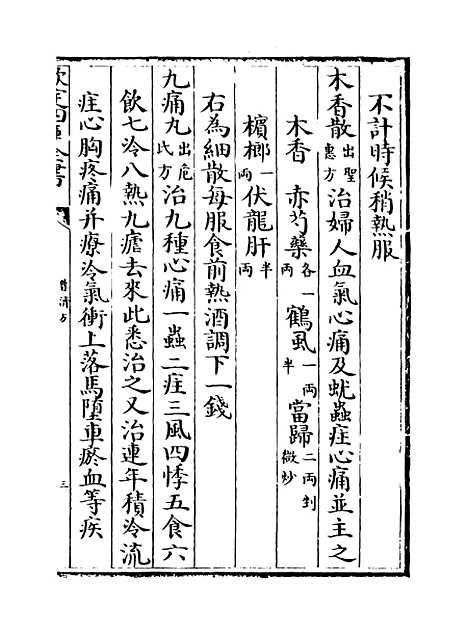 不計時候稍熱服
木香散出聖惠方治婦人血氣心痛及蚘蟲疰心痛並主之
木香 赤芍藥各一兩 鶴虱一兩半 當歸二兩剉微炒
檳榔一兩 伏龍肝半兩
右為細散每服食前熱酒調下一錢
九痛丸出危氏方治九種心痛一蟲二疰三風四悸五食六
飲七冷八熱九瘧去來此悉治之又治連年積冷流
疰心胸疼痛并療冷氣衝上落馬墮車瘀血等疾
欽定四庫全書
普濟方
三